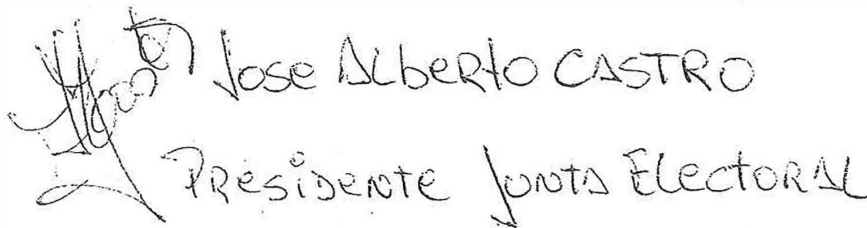 Jose Alberto CASTRO
Presidente Junta Electoral